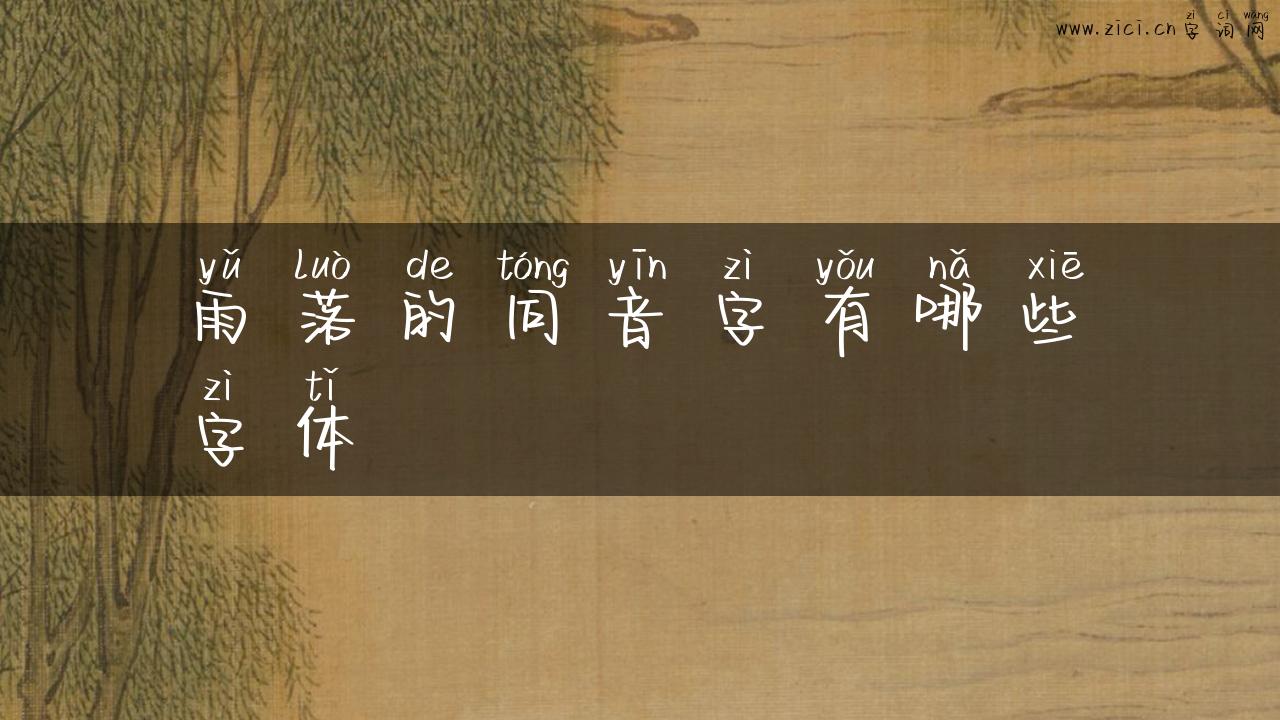 zì cí wǎng
www.zici.cn 字词网
yǔ luò de tóng yīn zì yǒu nǎ xiē
雨落的同音字有哪些
zì tǐ
字体